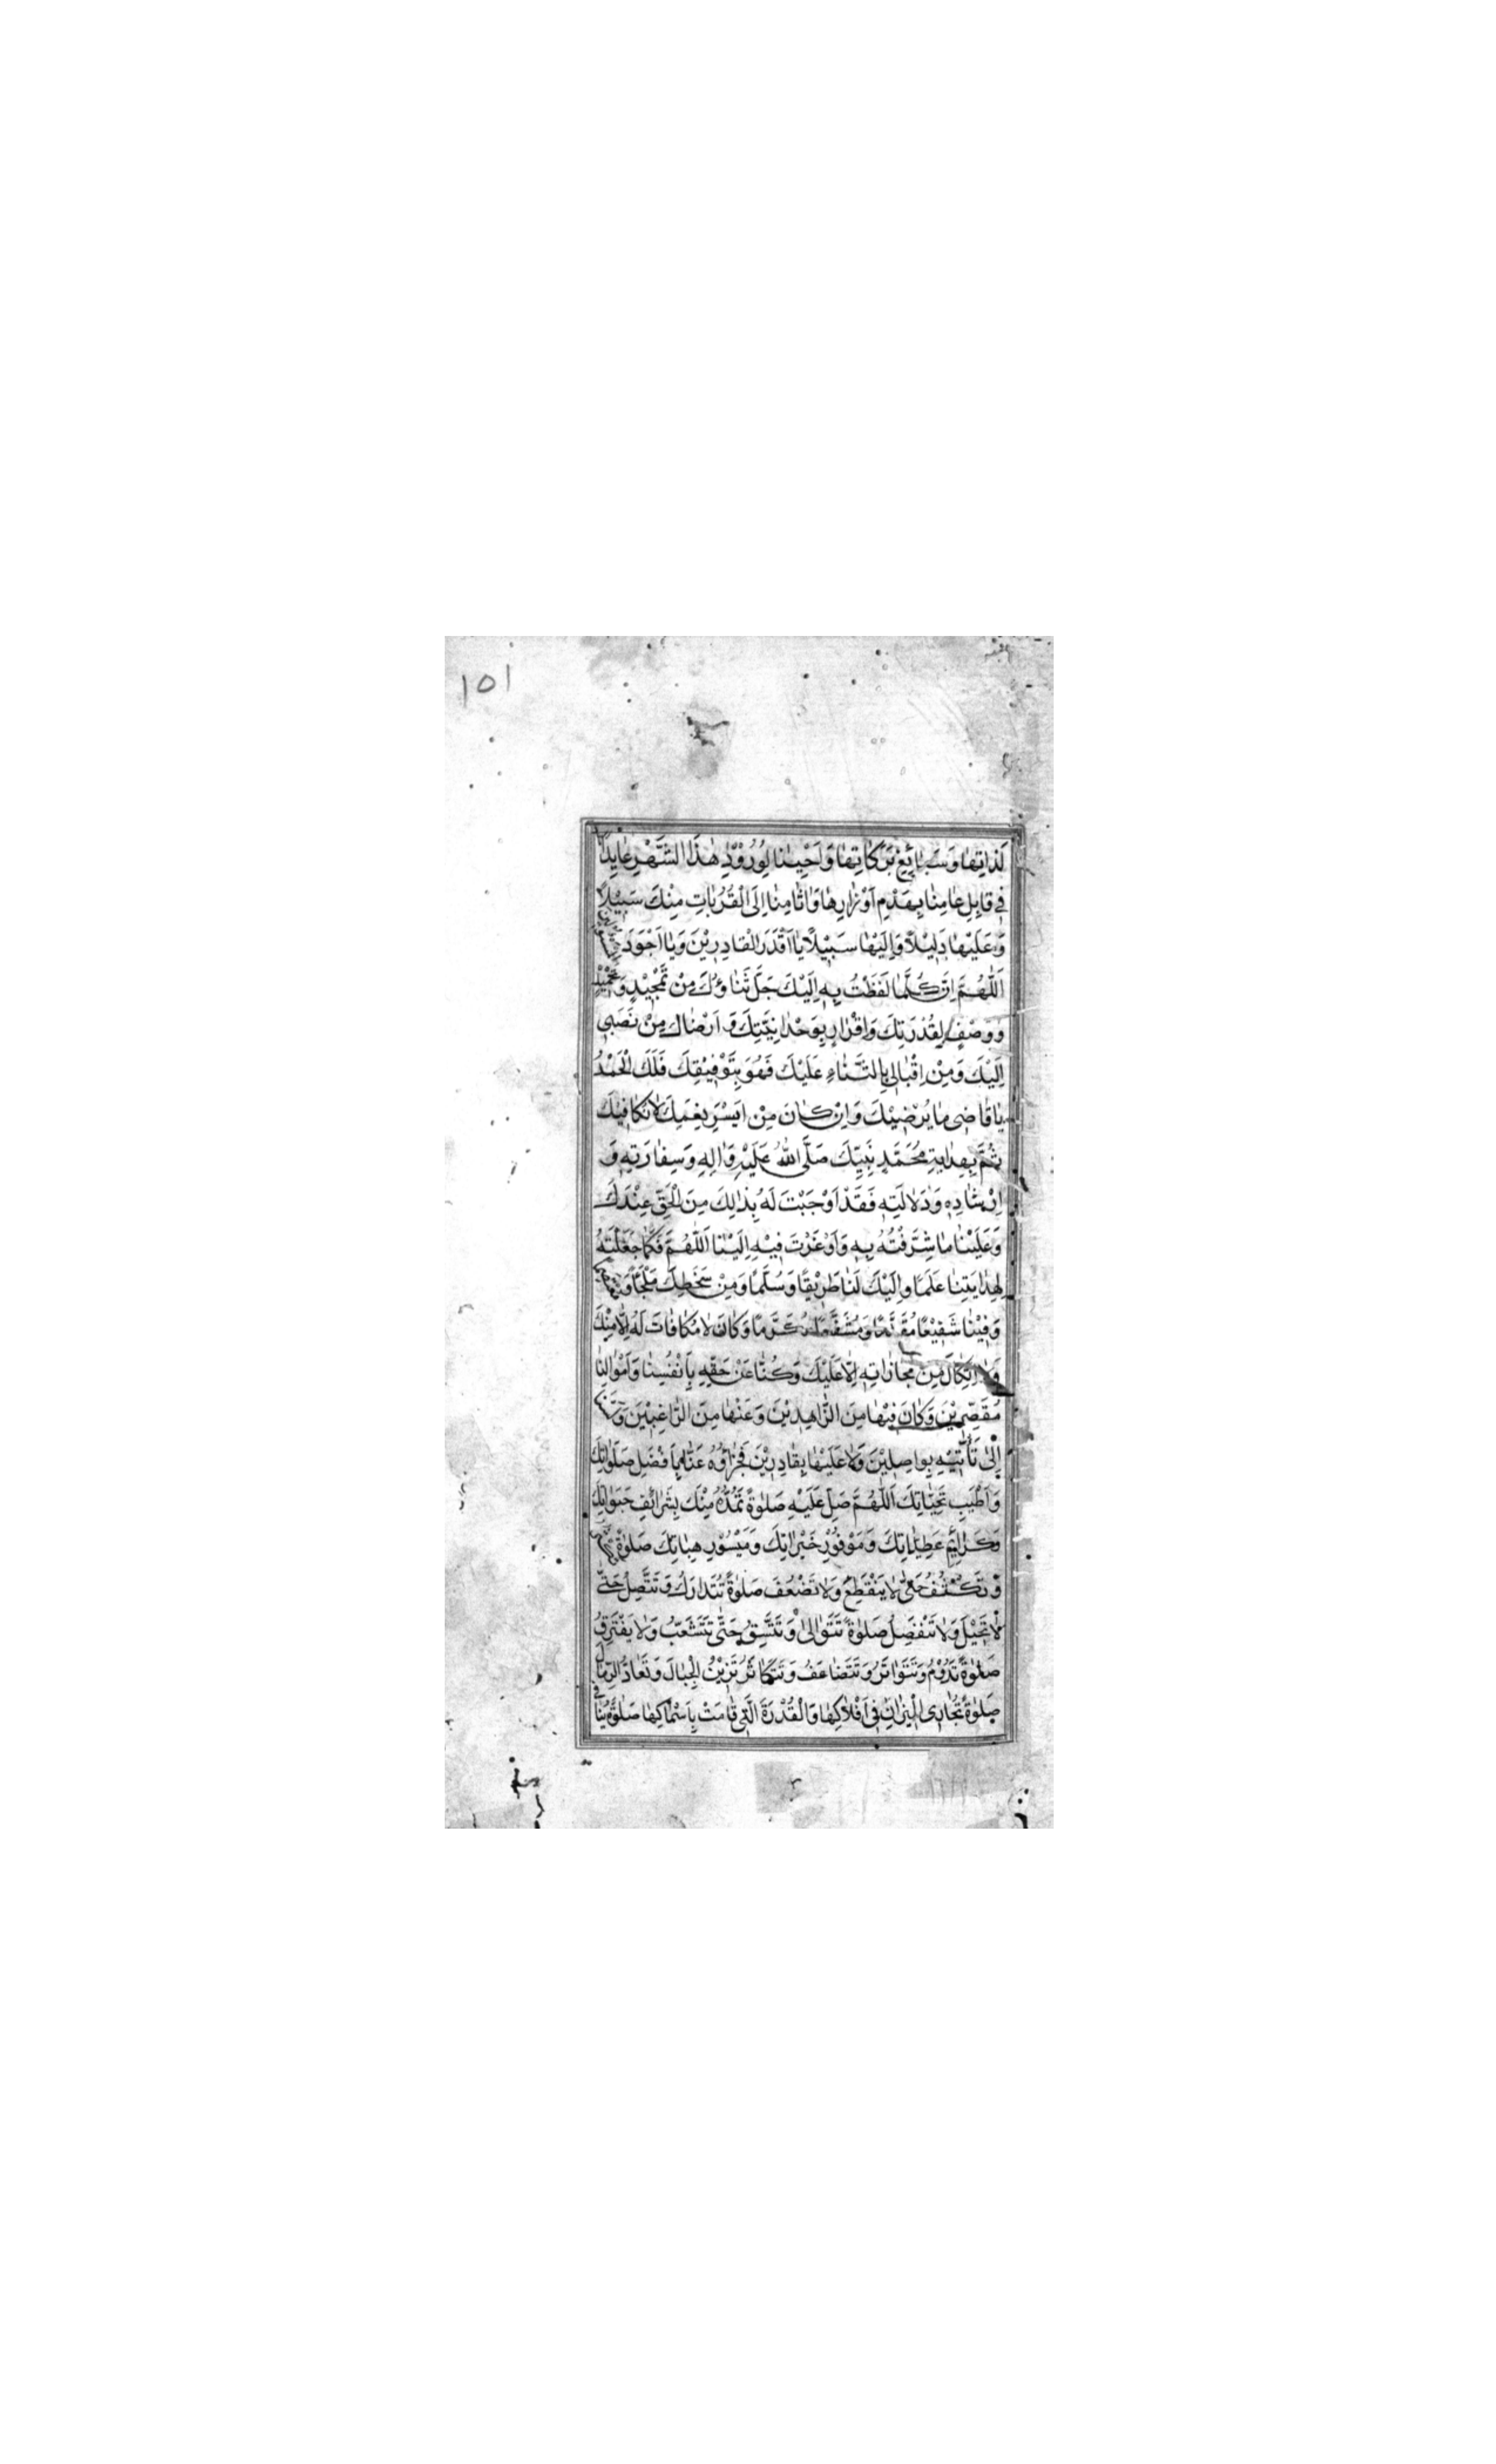 ١٥١
لَذاتِها وَسَبايِغِ بَرَكاتِها وَاَحْيِنا لِوُرُوْدِ هٰذَا الشَّهْرِ عايِدًا
فِي قابِلِ عامِنا بِهَدْمِ اَوْزارِها وَاٰثامِنا اِلَى الْقُرُباتِ مِنْكَ سَبِيْلًا
وَعَلَيْها دَلِيْلًا وَاِلَيْها سَبِيْلًا يا اَقْدَرَ الْقادِرِيْنَ وَيا اَجْوَدَ
اَللّٰهُمَّ اِنَّ كُلَّما لَفَظْتُ بِهِ اِلَيْكَ جَلَّ ثَناؤُكَ مِنْ تَمْجِيْدٍ وَتَحْمِيْدٍ
وَوَصْفٍ لِقُدْرَتِكَ وَاِقْرارٍ بِوَحْدانِيَّتِكَ وَ اَرْضاكَ مِنْ نَصَبِي
اِلَيْكَ وَمِنْ اِقْبالِي بِالثَّناءِ عَلَيْكَ فَهُوَ بِتَوْفِيْقِكَ فَلَكَ الْحَمْدُ
يا قاضِي ما يُرْضِيْكَ وَاِنْ كانَ مِنْ اَيْسَرِ نِعَمِكَ لا نُكافِيْكَ
ثُمَّ بِهِدايَةِ مُحَمَّدٍ نَبِيِّكَ صَلَّى اللّٰهُ عَلَيْهِ وَاٰلِهِ وَسِفارَتِهِ وَ
اِرْشادِهِ وَدَلالَتِهِ فَقَدْ اَوْجَبْتَ لَهُ بِذٰلِكَ مِنَ الْحَقِّ عِنْدَكَ
وَعَلَيْنا ما شَرَّفْتَهُ بِهِ وَاَوْعَزْتَ فِيْهِ اِلَيْنا اَللّٰهُمَّ فَكَما جَعَلْتَهُ
لِهِدايَتِنا عَلَمًا وَاِلَيْكَ لَنا طَرِيْقًا وَسُلَّمًا وَمِنْ سَخَطِكَ مَلْجَأً
وَفِيْنا شَفِيْعًا مُقَدَّمًا وَمُشَفَّعًا مُكَرَّمًا وَكانَ لا مُكافاتَ لَهُ اِلّا مِنْكَ
وَلا اتِّكالَ مِنْ مُجازاتِهِ اِلّا عَلَيْكَ وَكُنّا عَنْ حَقِّهِ بِاَنْفُسِنا وَاَمْوالِنا
مُقَصِّرِيْنَ وَكانَ فِيْها مِنَ الزّاهِدِيْنَ وَعَنْها مِنَ الرّاغِبِيْنَ
اِلى تَأَتِّيْهِ بِواصِلِيْنَ وَلا عَلَيْها بِقادِرِيْنَ فَجَزاؤُهُ عَنّا بِاَفْضَلِ صَلَواتِكَ
وَاَطْيَبِ تَحِيّاتِكَ اَللّٰهُمَّ صَلِّ عَلَيْهِ صَلوٰةً تَمُدُّهُ مِنْكَ بِشَرائِفِ حَبَواتِكَ
وَكَرايِمِ عَطِيّاتِكَ وَمَوْفُوْرِ خَيْراتِكَ وَمَيْسُوْرِ هِباتِكَ صَلوٰةً
وَتَكْثُفُ حَتّى لا يَنْقَطِعَ وَلا تَضْعُفَ صَلوٰةً تَتَدارَكُ وَتَتَّصِلُ حَتّى
لا تَحِيْلَ وَلا تَنْفَصِلُ صَلوٰةً تَتَوالى وَتَتَّسِقُ حَتّى تَتَشَعَّبُ وَلا يَفْتَرِقُ
صَلوٰةً تَدُوْمُ وَتَتَواتَرُ وَتَتَضاعَفُ وَتَتَكاثَرُ تَزِيْنُ الْجِبالَ وَتَعادُّ الرِّمالَ
صَلوٰةً تُجارِي الْمِيْزانَ فِي اَفْلاكِها وَالْقُدْرَةَ الَّتِي قامَتْ بِاَسْماكِها صَلوٰةً